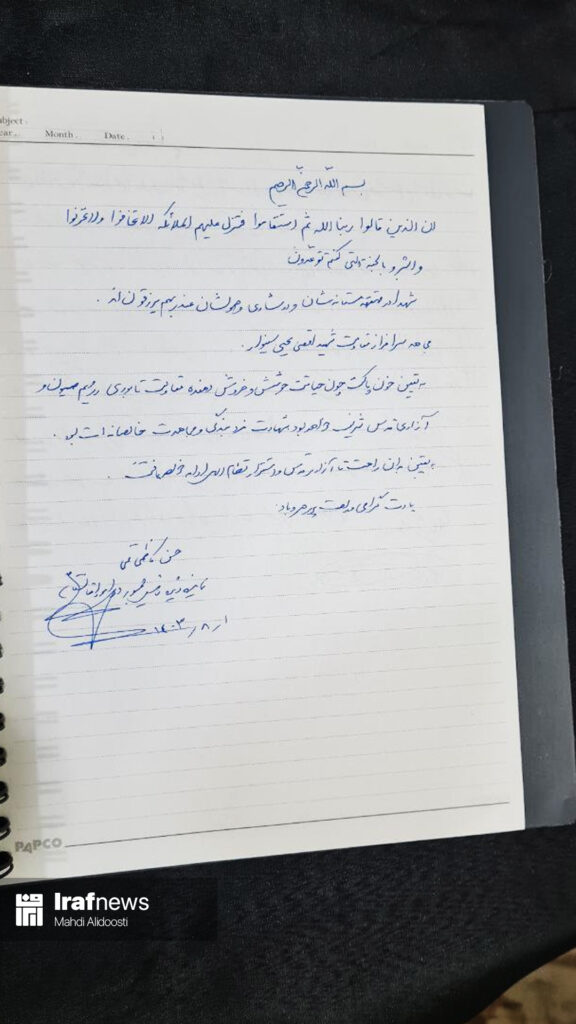 Subject.
Year. Month. Date. ( )
بسم الله الرحمن الرحیم
ان الذین قالوا ربنا الله ثم استقاموا تتنزل علیهم الملائکه الا تخافوا ولا تحزنوا
و ابشرو بالجنة التی کنتم توعدون
شهدا در قهقهه مستانه شان و در شادی وصولشان عند ربهم یرزقون اند .
مجاهد سرافراز مقاومت شهید القدس یحیی سینوار .
به یقین خون پاکت چون حیاتت جوشش و خروش دهنده مقاومت تا نابودی رژیم صهیون و
آزادی قدس شریف خواهد بود شهادت مزد بندگی و مجاهدت خالصانه ات بود .
به یقین راهت تا آزادی قدس و استقرار نظام الهی ادامه خواهد داشت .
یادت گرامی و راهت پر رهرو باد .
حسن کاظمی قمی
نماینده ویژه رئیس جمهور در امور افغانستان
۱۴۰۳ر۸ر۱
PAPCO
Irafnews
Mahdi Alidoosti